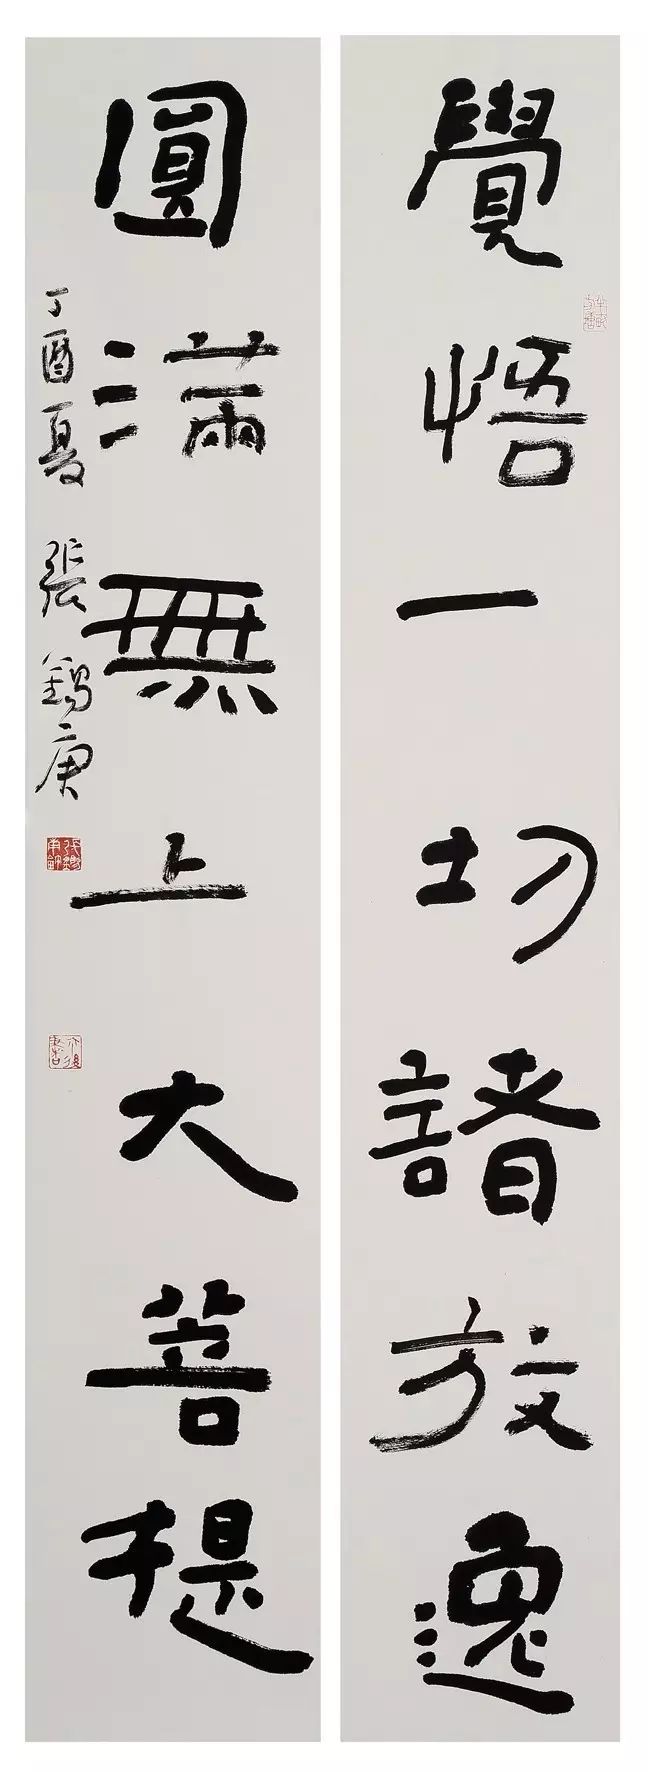 覺悟一切諸放逸
圓滿無上大菩提
丁酉夏 張錫庚